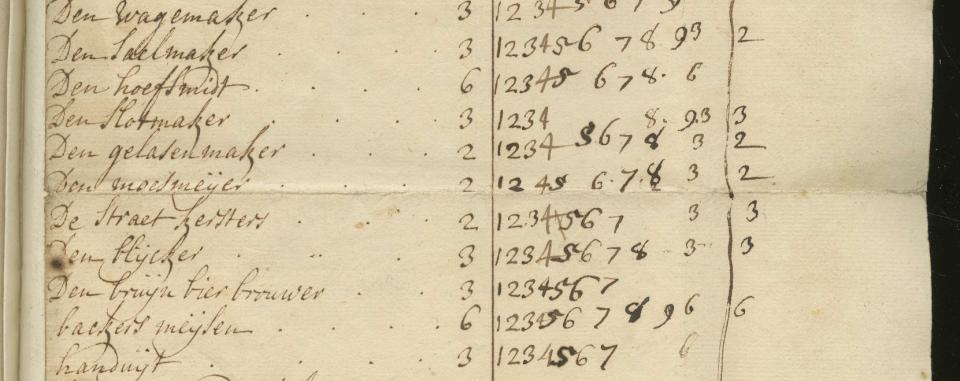 Den wagemaker . . . 3 12345 6 7 9
Den Saelmaker . . . 3 123456 7 8 9 3 2
Den hoefsmidt . . . . 6 12345 6 7 8. 6
Den Slotmaker . . . 3 1234 8. 9.3 3
Den gelasenmaker . . . 2 1234 5 6 7 8 3 2
Den moesmeijer . . . 2 12 45 6.7.8 3 2
De Straet kersters . . . 2 1234567 3 3
Den blijcker . . . 3 12345678 3 3
Den bruijn bier brouwer . . 3 1234567
backers meijsen . . . . 6 123456 7 8 9 6 6
handuijt . . . . 3 1234567 6